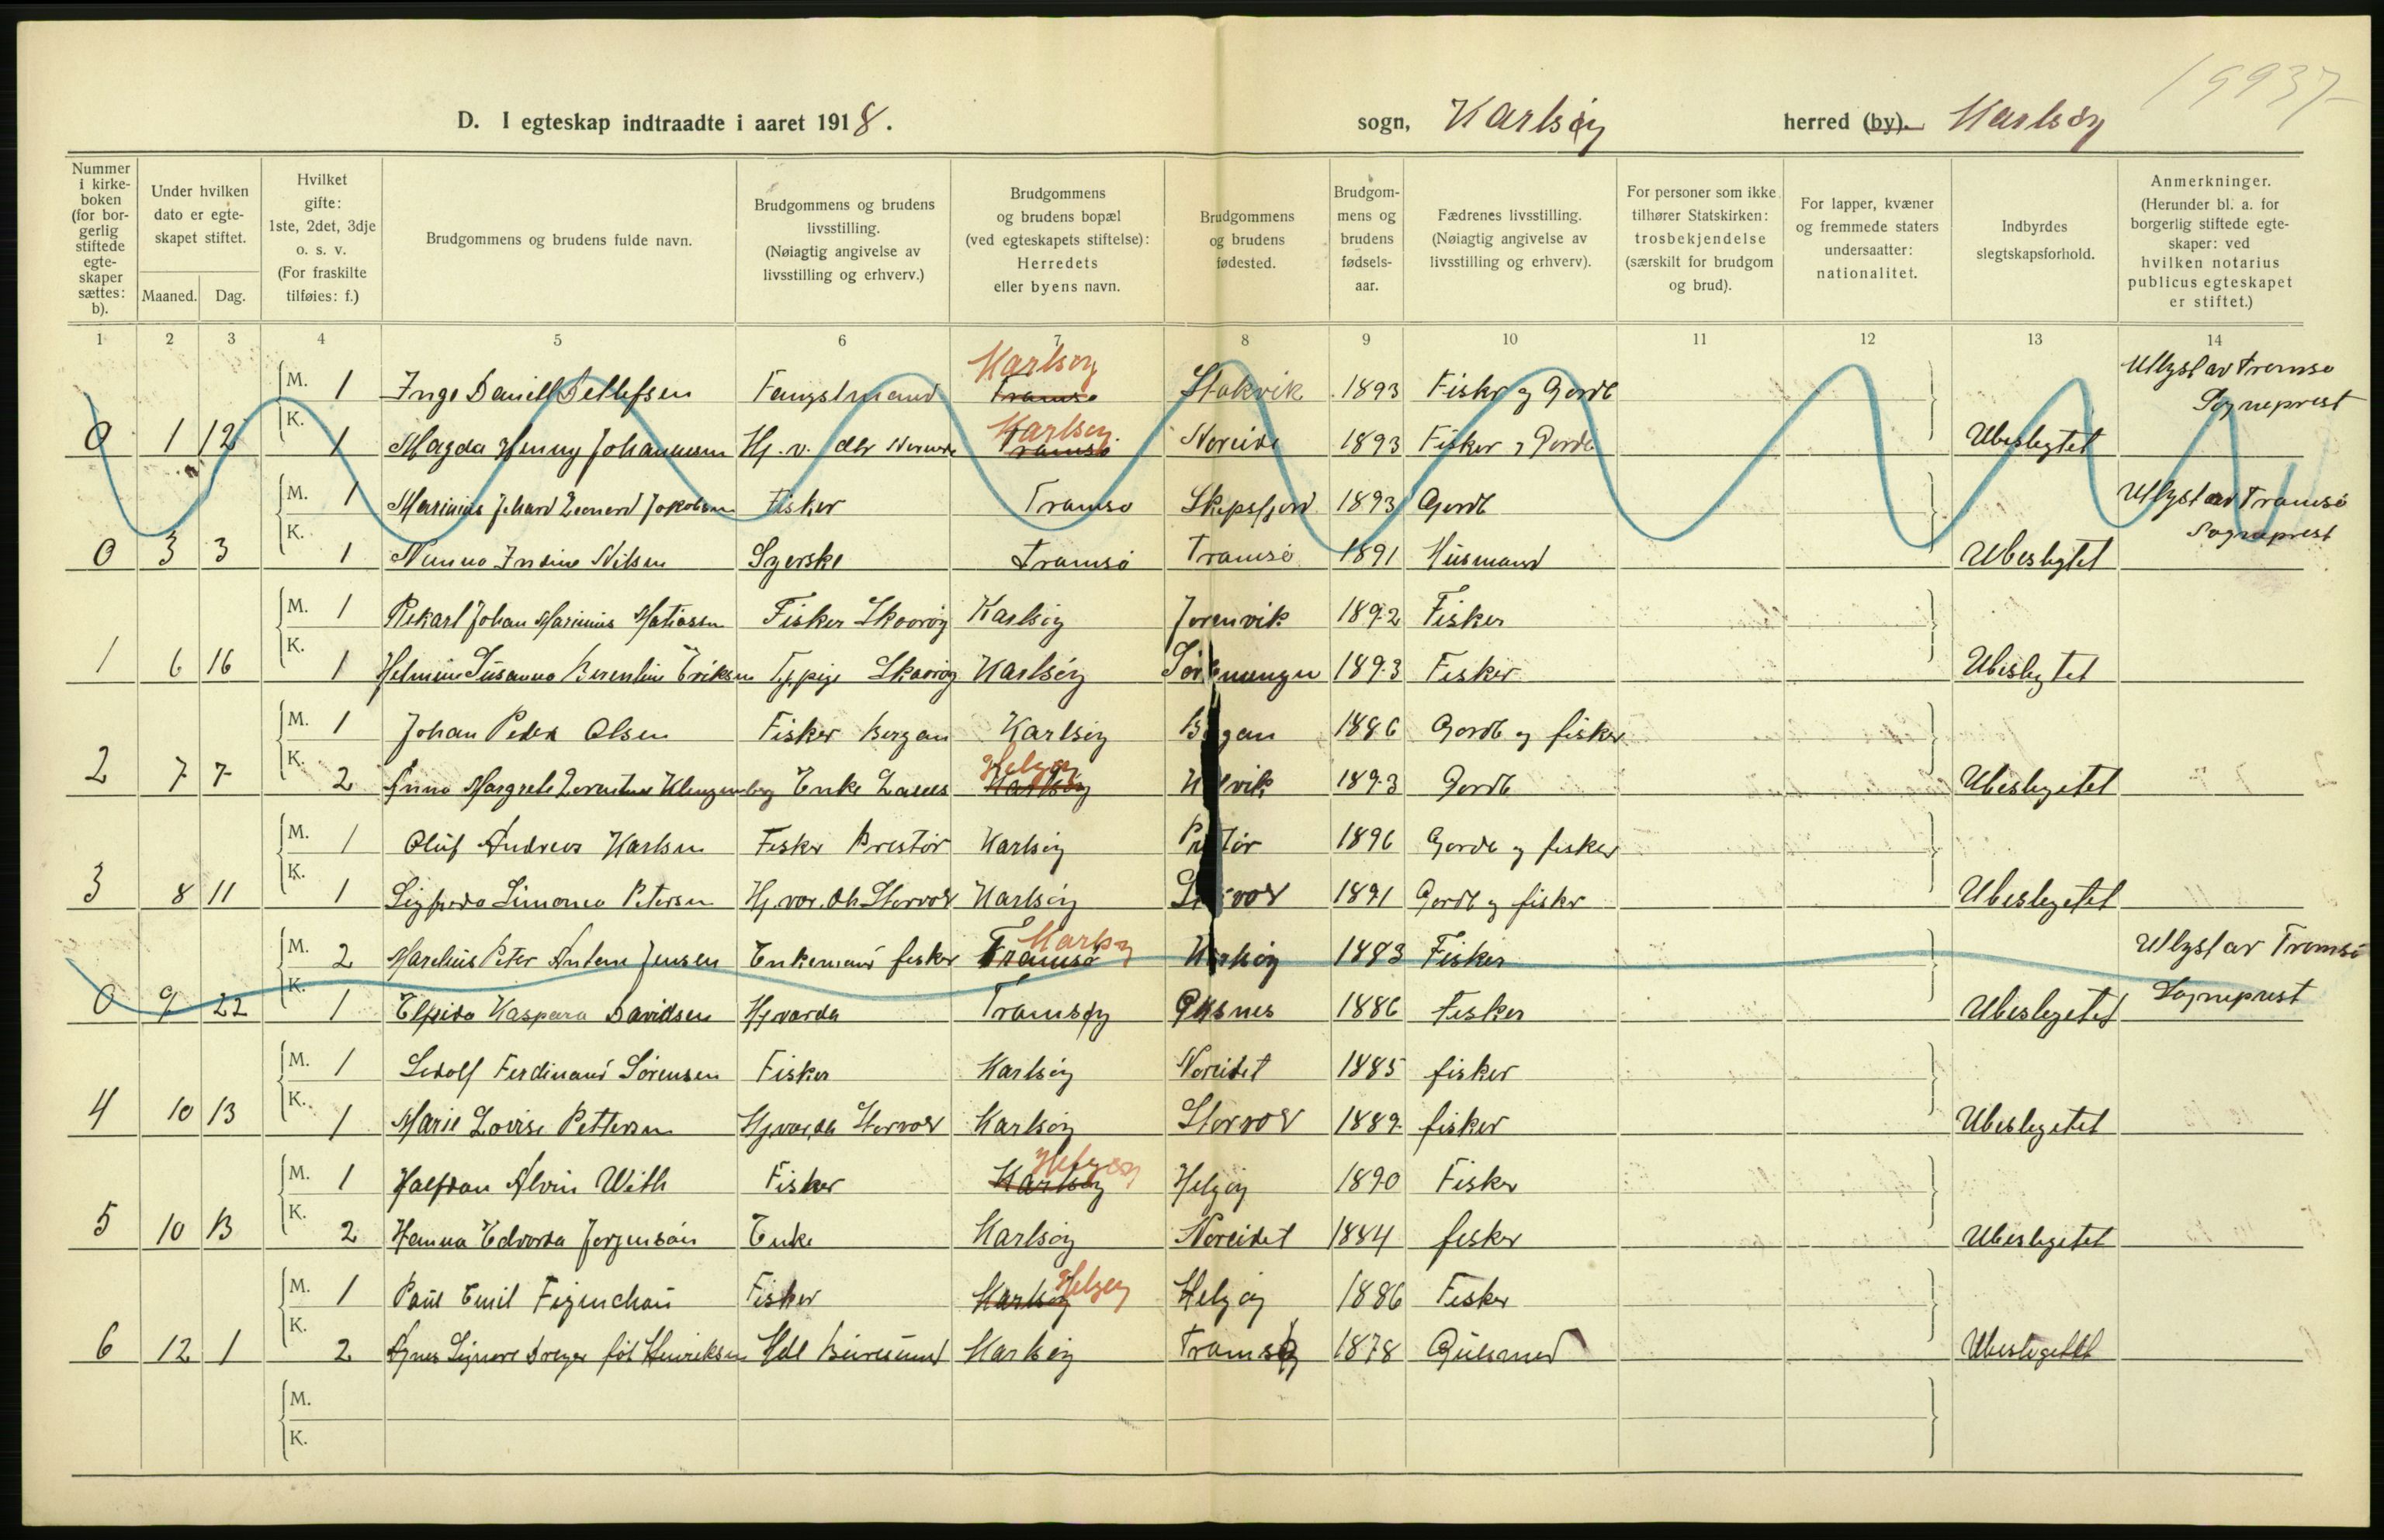 19937
D. I egteskap indtraadte i aaret 1918. sogn, Karlsøy herred (by). Karlsøy
Nummer i kirke- boken (for bor- gerlig stiftede egte- skaper sættes: b).
Under hvilken dato er egte- skapet stiftet.
Maaned. Dag.
Hvilket gifte: 1ste, 2det, 3dje o. s. v. (For fraskilte tilføies: f.)
Brudgommens og brudens fulde navn.
Brudgommens og brudens livsstilling. (Nøiagtig angivelse av livsstilling og erhverv.)
Brudgommens og brudens bopæl (ved egteskapets stiftelse): Herredets eller byens navn.
Brudgommens og brudens fødested.
Brudgom- mens og brudens fødsels- aar.
Fædrenes livsstilling. (Nøiagtig angivelse av livsstilling og erhverv).
For personer som ikke tilhører Statskirken: trosbekjendelse (særskilt for brudgom og brud).
For lapper, kvæner og fremmede staters undersaatter: nationalitet.
Indbyrdes slegtskapsforhold.
Anmerkninger. (Herunder bl. a. for borgerlig stiftede egte- skaper: ved hvilken notarius publicus egteskapet er stiftet.)
1 2 3 4 5 6 7 8 9 10 11 12 13 14
M. 1 Inge Daniell Detlefsen Fangstmand Tromsø Karlsøy Stakvik 1893 Fisker og Gordb Utlyst av Tromsø
0 1 12 K. 1 Magda Henny Johannesen Hj. v. dtr Tromsø Karlsøy Noreide 1893 Fisker Gordb Ubeslegtet Sogneprest
M. 1 Marinius Johard Leonerd Jakobsen Fisker Tromsø Skipsfjord 1893 Gordb Utlyst av Tromsø
0 3 3 K. 1 Nunna Indine Nilsen Syerske Tromsø Tromsø 1891 Husmand Ubeslegtet Sogneprest
M. 1 Rikart Johan Marinius Matiassen Fisker Skorøy Karlsøy 1892 Fisker
1 6 16 K. 1 Helmine Susanna Berentine Eriksen Tj.pige Skorøy Karlsøy 1893 Fisker Ubeslegtet
M. 1 Johan Peder Olsen Fisker Bergan Karlsøy 1886 Gordb og fisker
2 7 7 K. 2 Anna Margrete Enke Karlsøy Helgøy 1893 Gordb Ubeslegetet
M. 1 Oluf Andreas Karlsen Fisker Prestør Karlsøy 1896 Gordb og fisker
3 8 11 K. 1 Sigfreda Simonea Petersen Hj.var. dtr Storvor Karlsøy 1891 Gordb og fisker Ubeslegetet
M. 2 Marelius Peter Antone Jensen Enkemand fisker Tromsø Karlsøy Karlsøy 1883 Fisker Utlyst av Tromsø
0 9 22 K. 1 Elfrida Kaspara Davidsen Hj.varde Tromsøy 1886 Fisker Ubeslegetet Sogneprest
M. 1 Ludolf Ferdinand Sørensen Fisker Karlsøy Noreidet 1885 fisker
4 10 13 K. 1 Marie Lovise Pettersen Hj.var.dtr Storvor Karlsøy Storvor 1889 fisker Ubeslegetet
M. 1 Halfdan Alvin With Fisker Karlsøy Helgøy Helgøy 1890 Fisker
5 10 13 K. 2 Hanna Edvarda Jørgensen Enke Karlsøy Noreidet 1884 fisker Ubeslegetet
M. 1 Paul Emil Figenchau Fisker Karlsøy Helgøy Helgøy 1886 Fisker
6 12 1 K. 2 Agnes Signora Dreyer föt Henriksen Karlsøy Tromsø 1878 Ubeslegetet
M.
K.